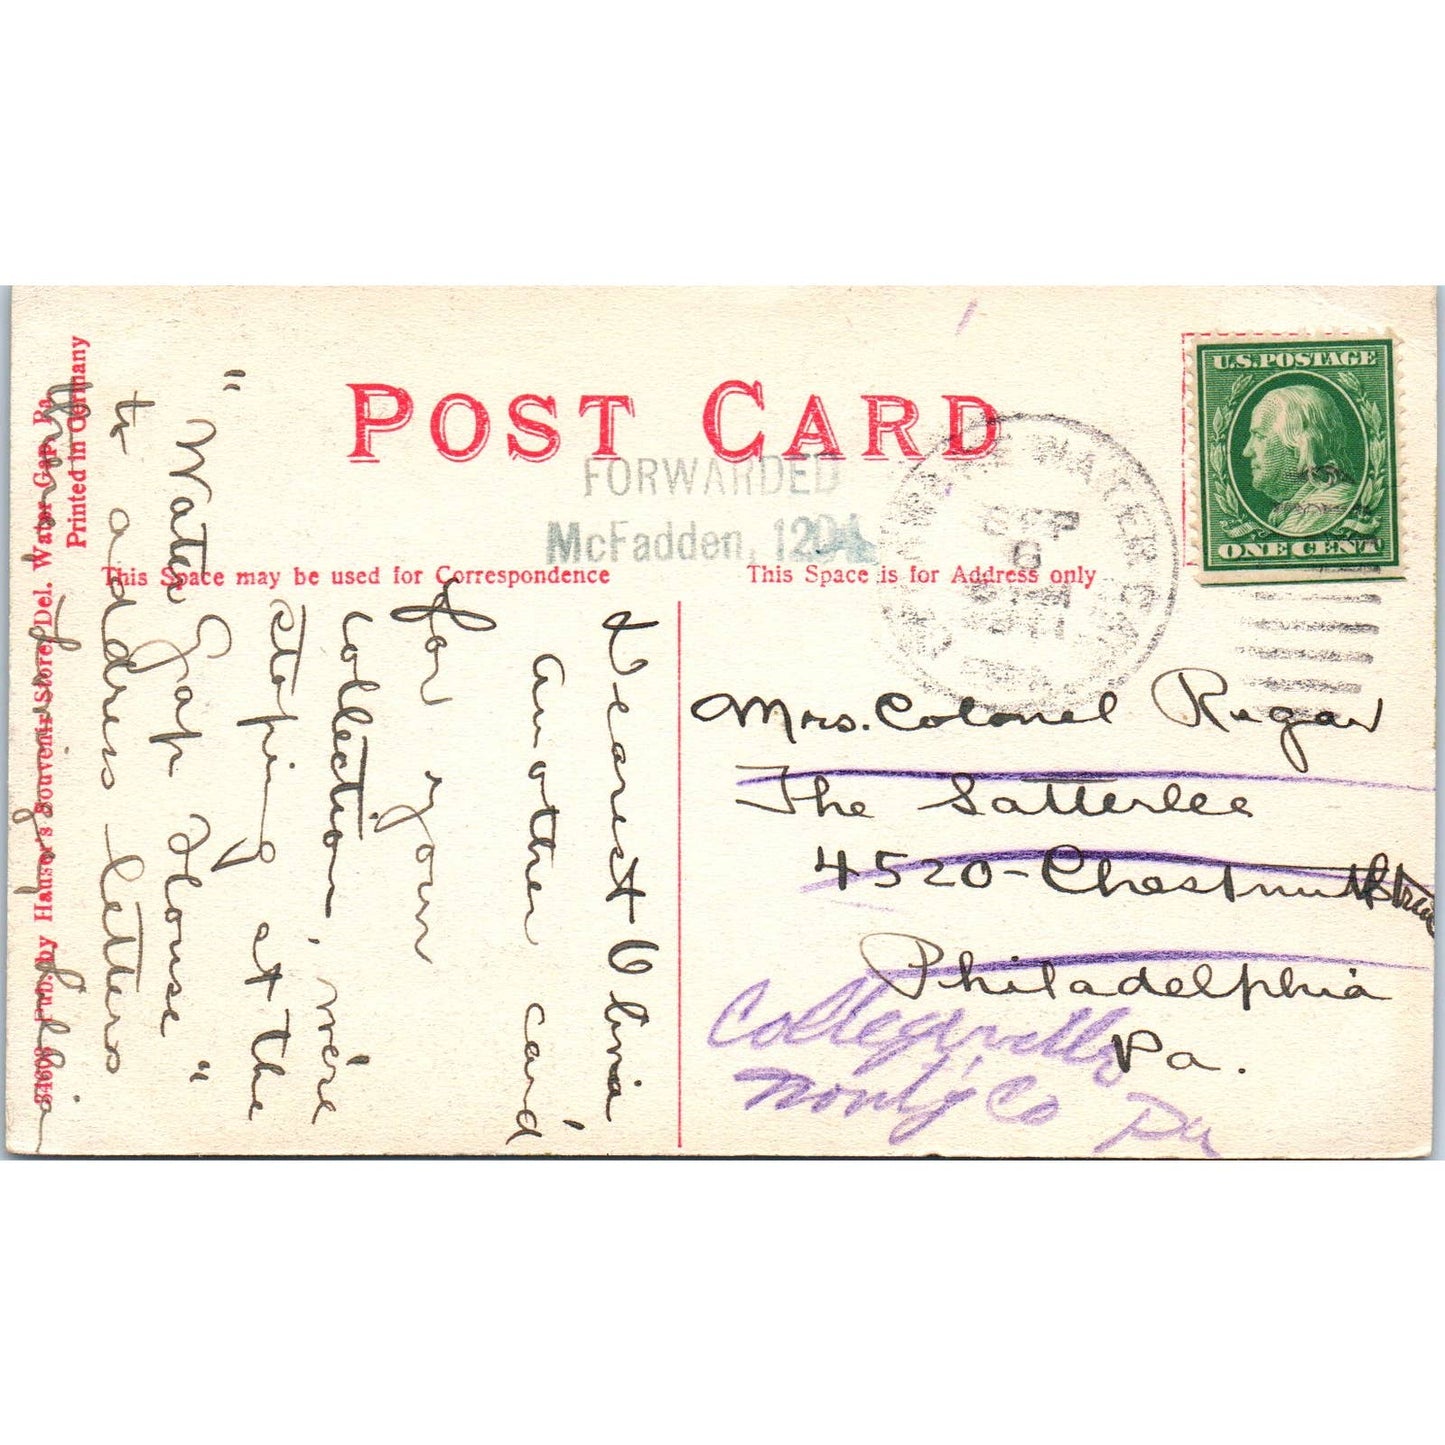 POST CARD
FORWARDED
McFadden, 1204
This Space may be used for Correspondence
This Space is for Address only
U.S. POSTAGE
ONE CENT
WATER
SEP
6
1911
Dearest Olivia
Another card
for your
collection, we're
stoping at the
"Water Gap House"
to address letters
there. Lovingly Lydia
Mrs. Colonel Regar
The Satterlee
4520 - Chestnut Street
Philadelphia
Pa.
Collegeville
Montg Co Pa
34608 Pub. by Hauser's Souvenir Store, Del. Water Gap, Pa.
Printed in Germany